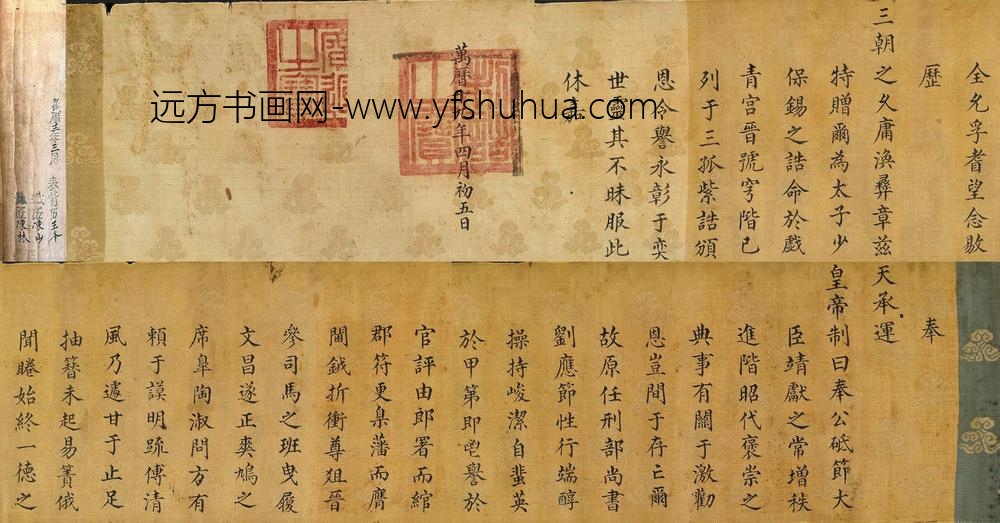 奉
天承運
皇帝制曰奉公砥節大
臣靖獻之常增秩
進階昭代褒崇之
典事有關于激勸
恩豈間于存亡爾
故原任刑部尚書
劉應節性行端醇
操持峻潔自蜚英
於甲第即鬯譽於
官評由郎署而綰
郡符更臬藩而膺
閫鉞折衝尊俎晉
參司馬之班曳履
文昌遂正爽鳩之
席皋陶淑問方有
賴于謨明疏傅清
風乃遽甘于止足
抽簪未起易簀俄
聞睠始終一德之
全允孚耆望念敭
歷
三朝之久庸渙彝章茲
特贈爾為太子少
保錫之誥命於戲
青宮晉號穹階已
列于三孤紫誥頒
恩令譽永彰于奕
世靈其不昧服此
休
萬曆年四月初五日
远方书画网-www.yfshuhua.com
年三月 表背匠王本
織匠陳山
陳林